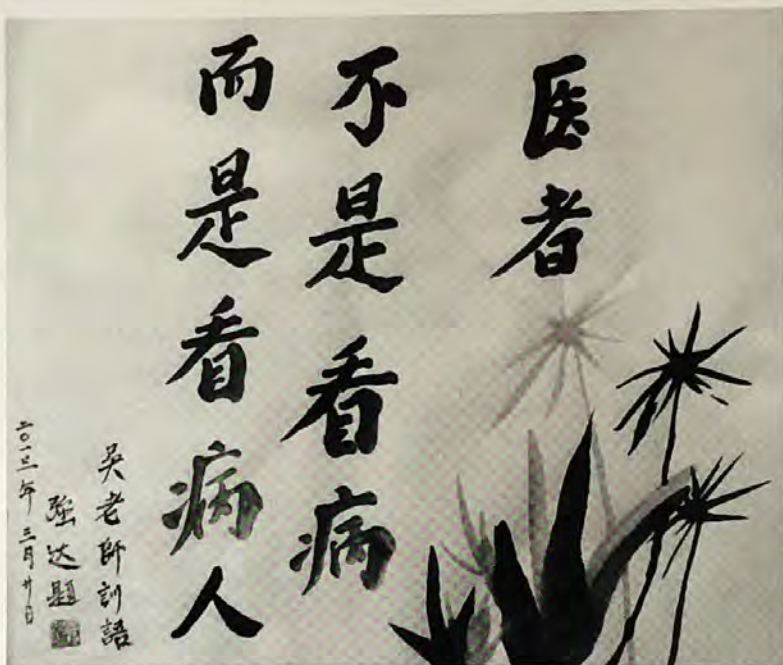 医者
不是看病
而是看病人
吳老師訓語
強达題
二〇一三年三月廿日